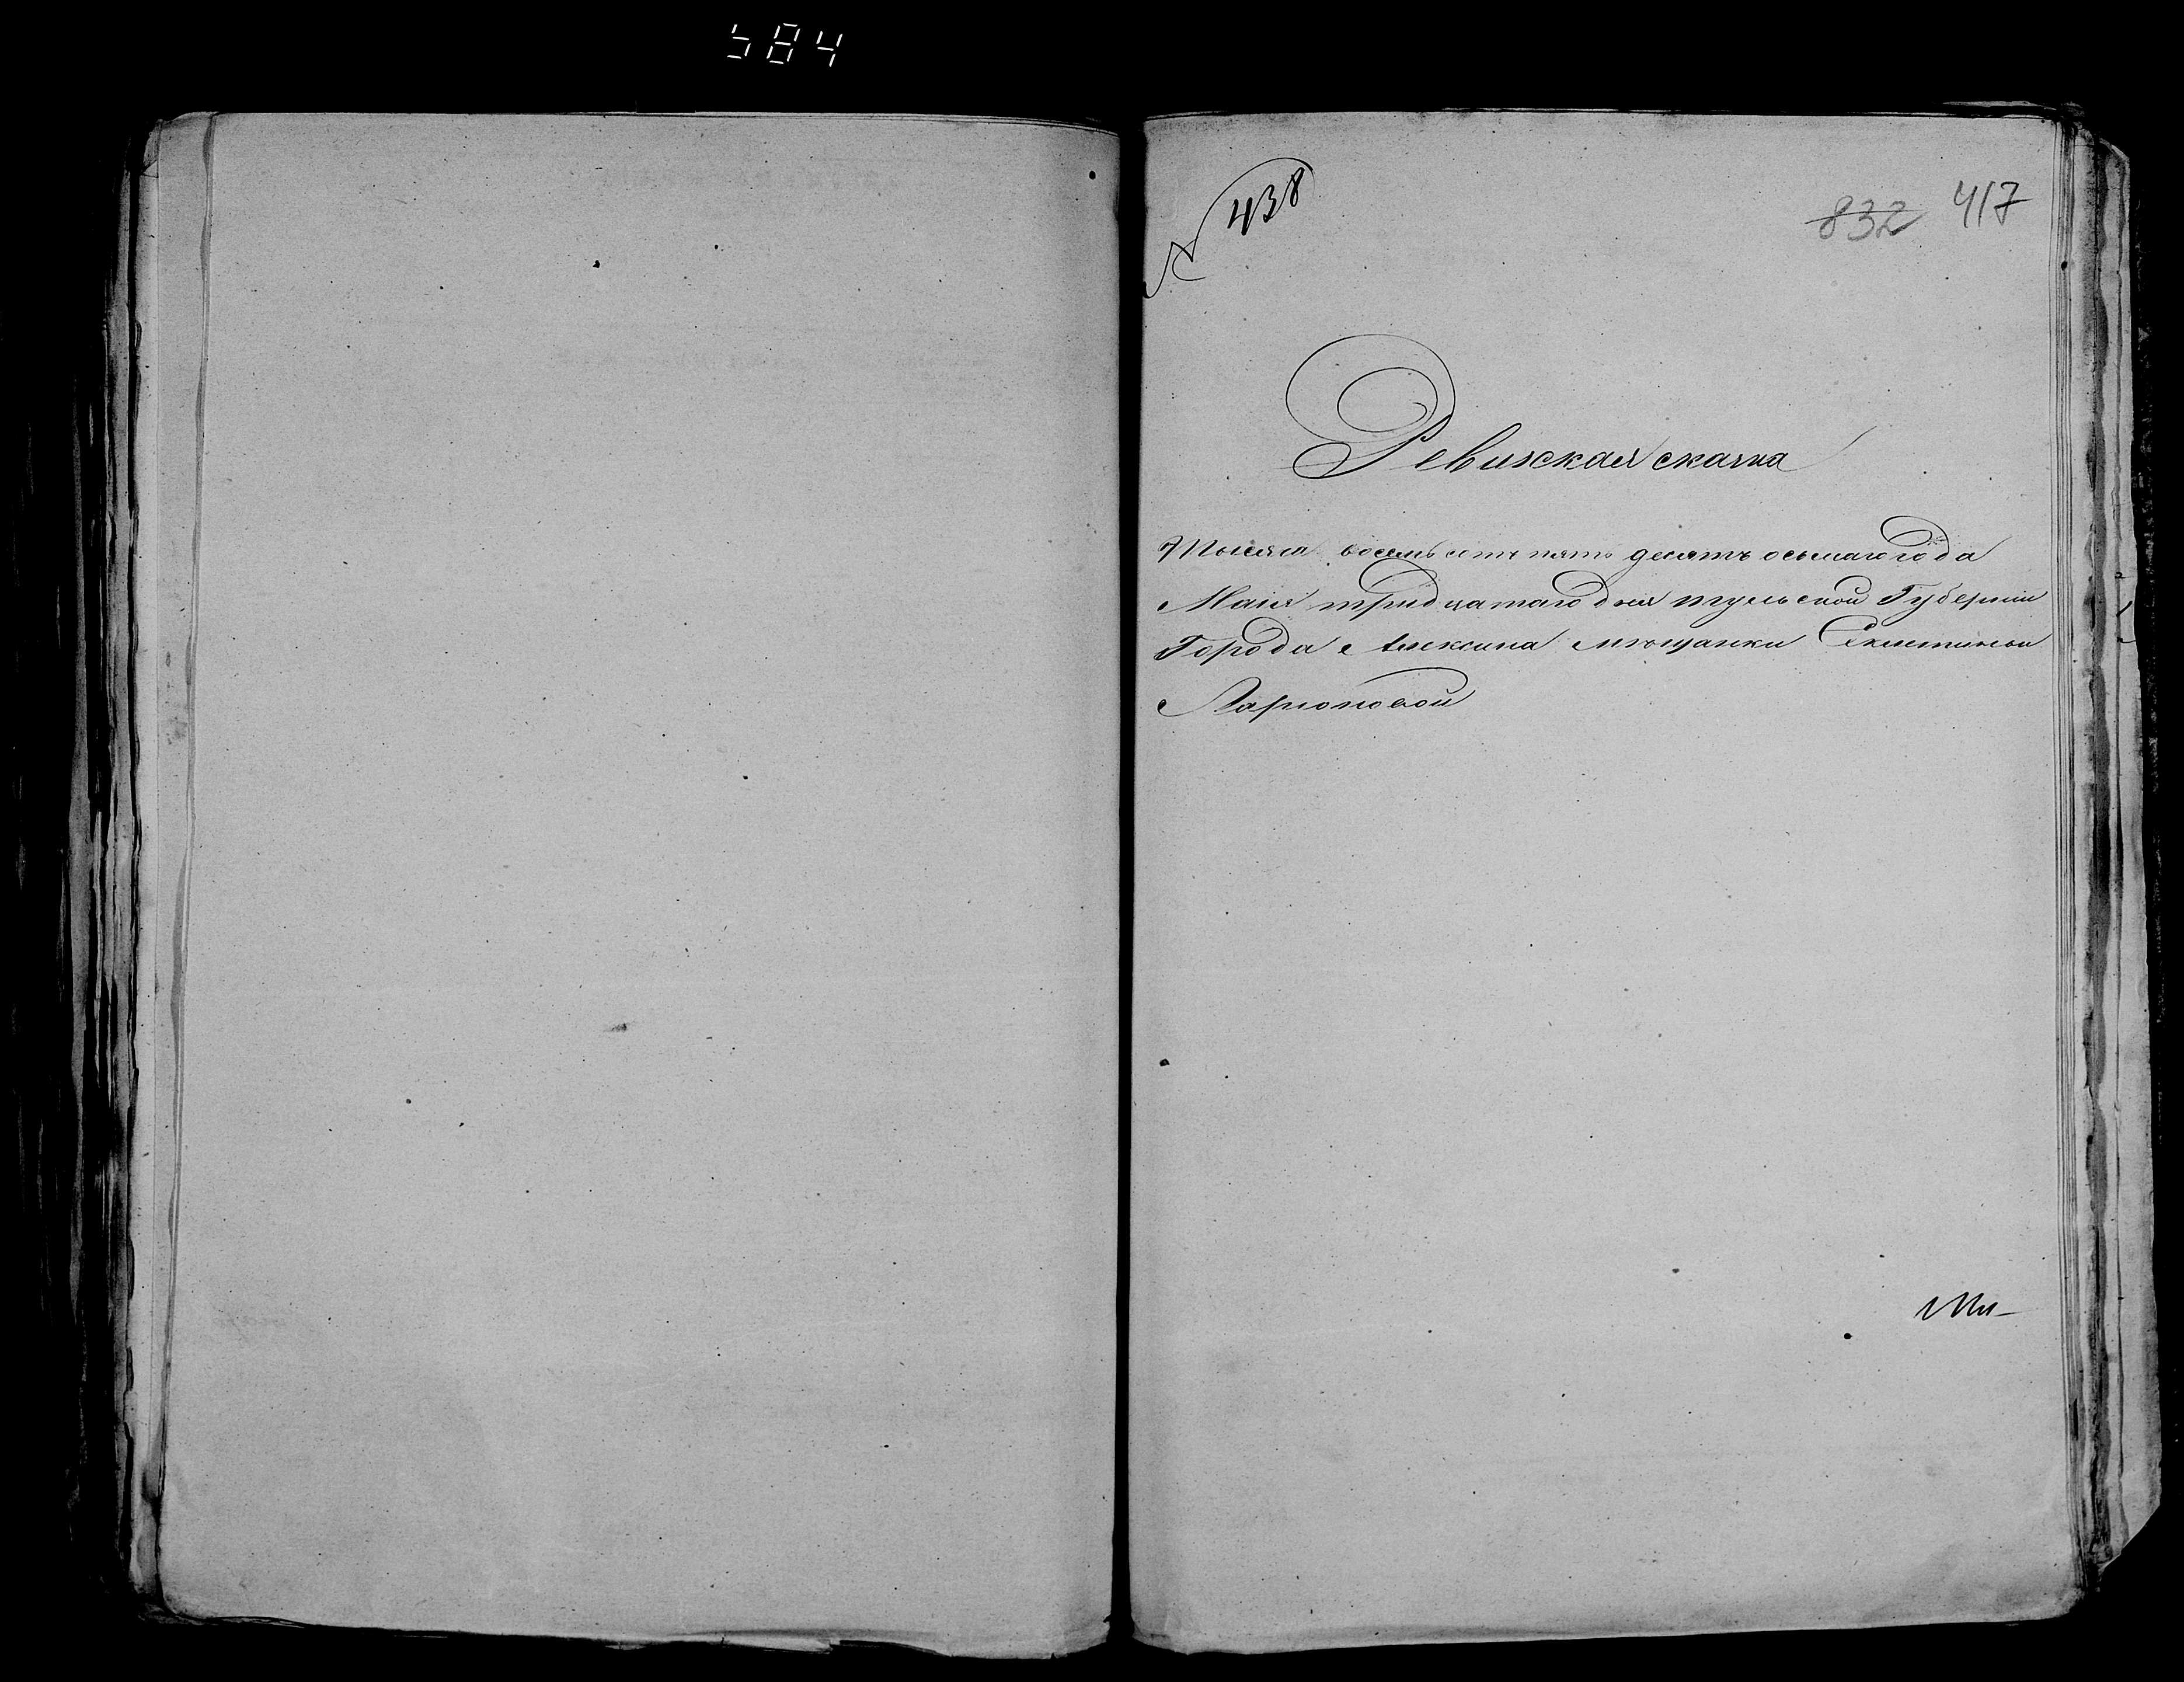 584
№ 438
832 417
Ревизская сказка
Тысяча восемь сотъ пять десятъ осьмаго года
Маія тридцатаго дня тульской Губерніи
Города Алексина мѣщанки
Ларионовой